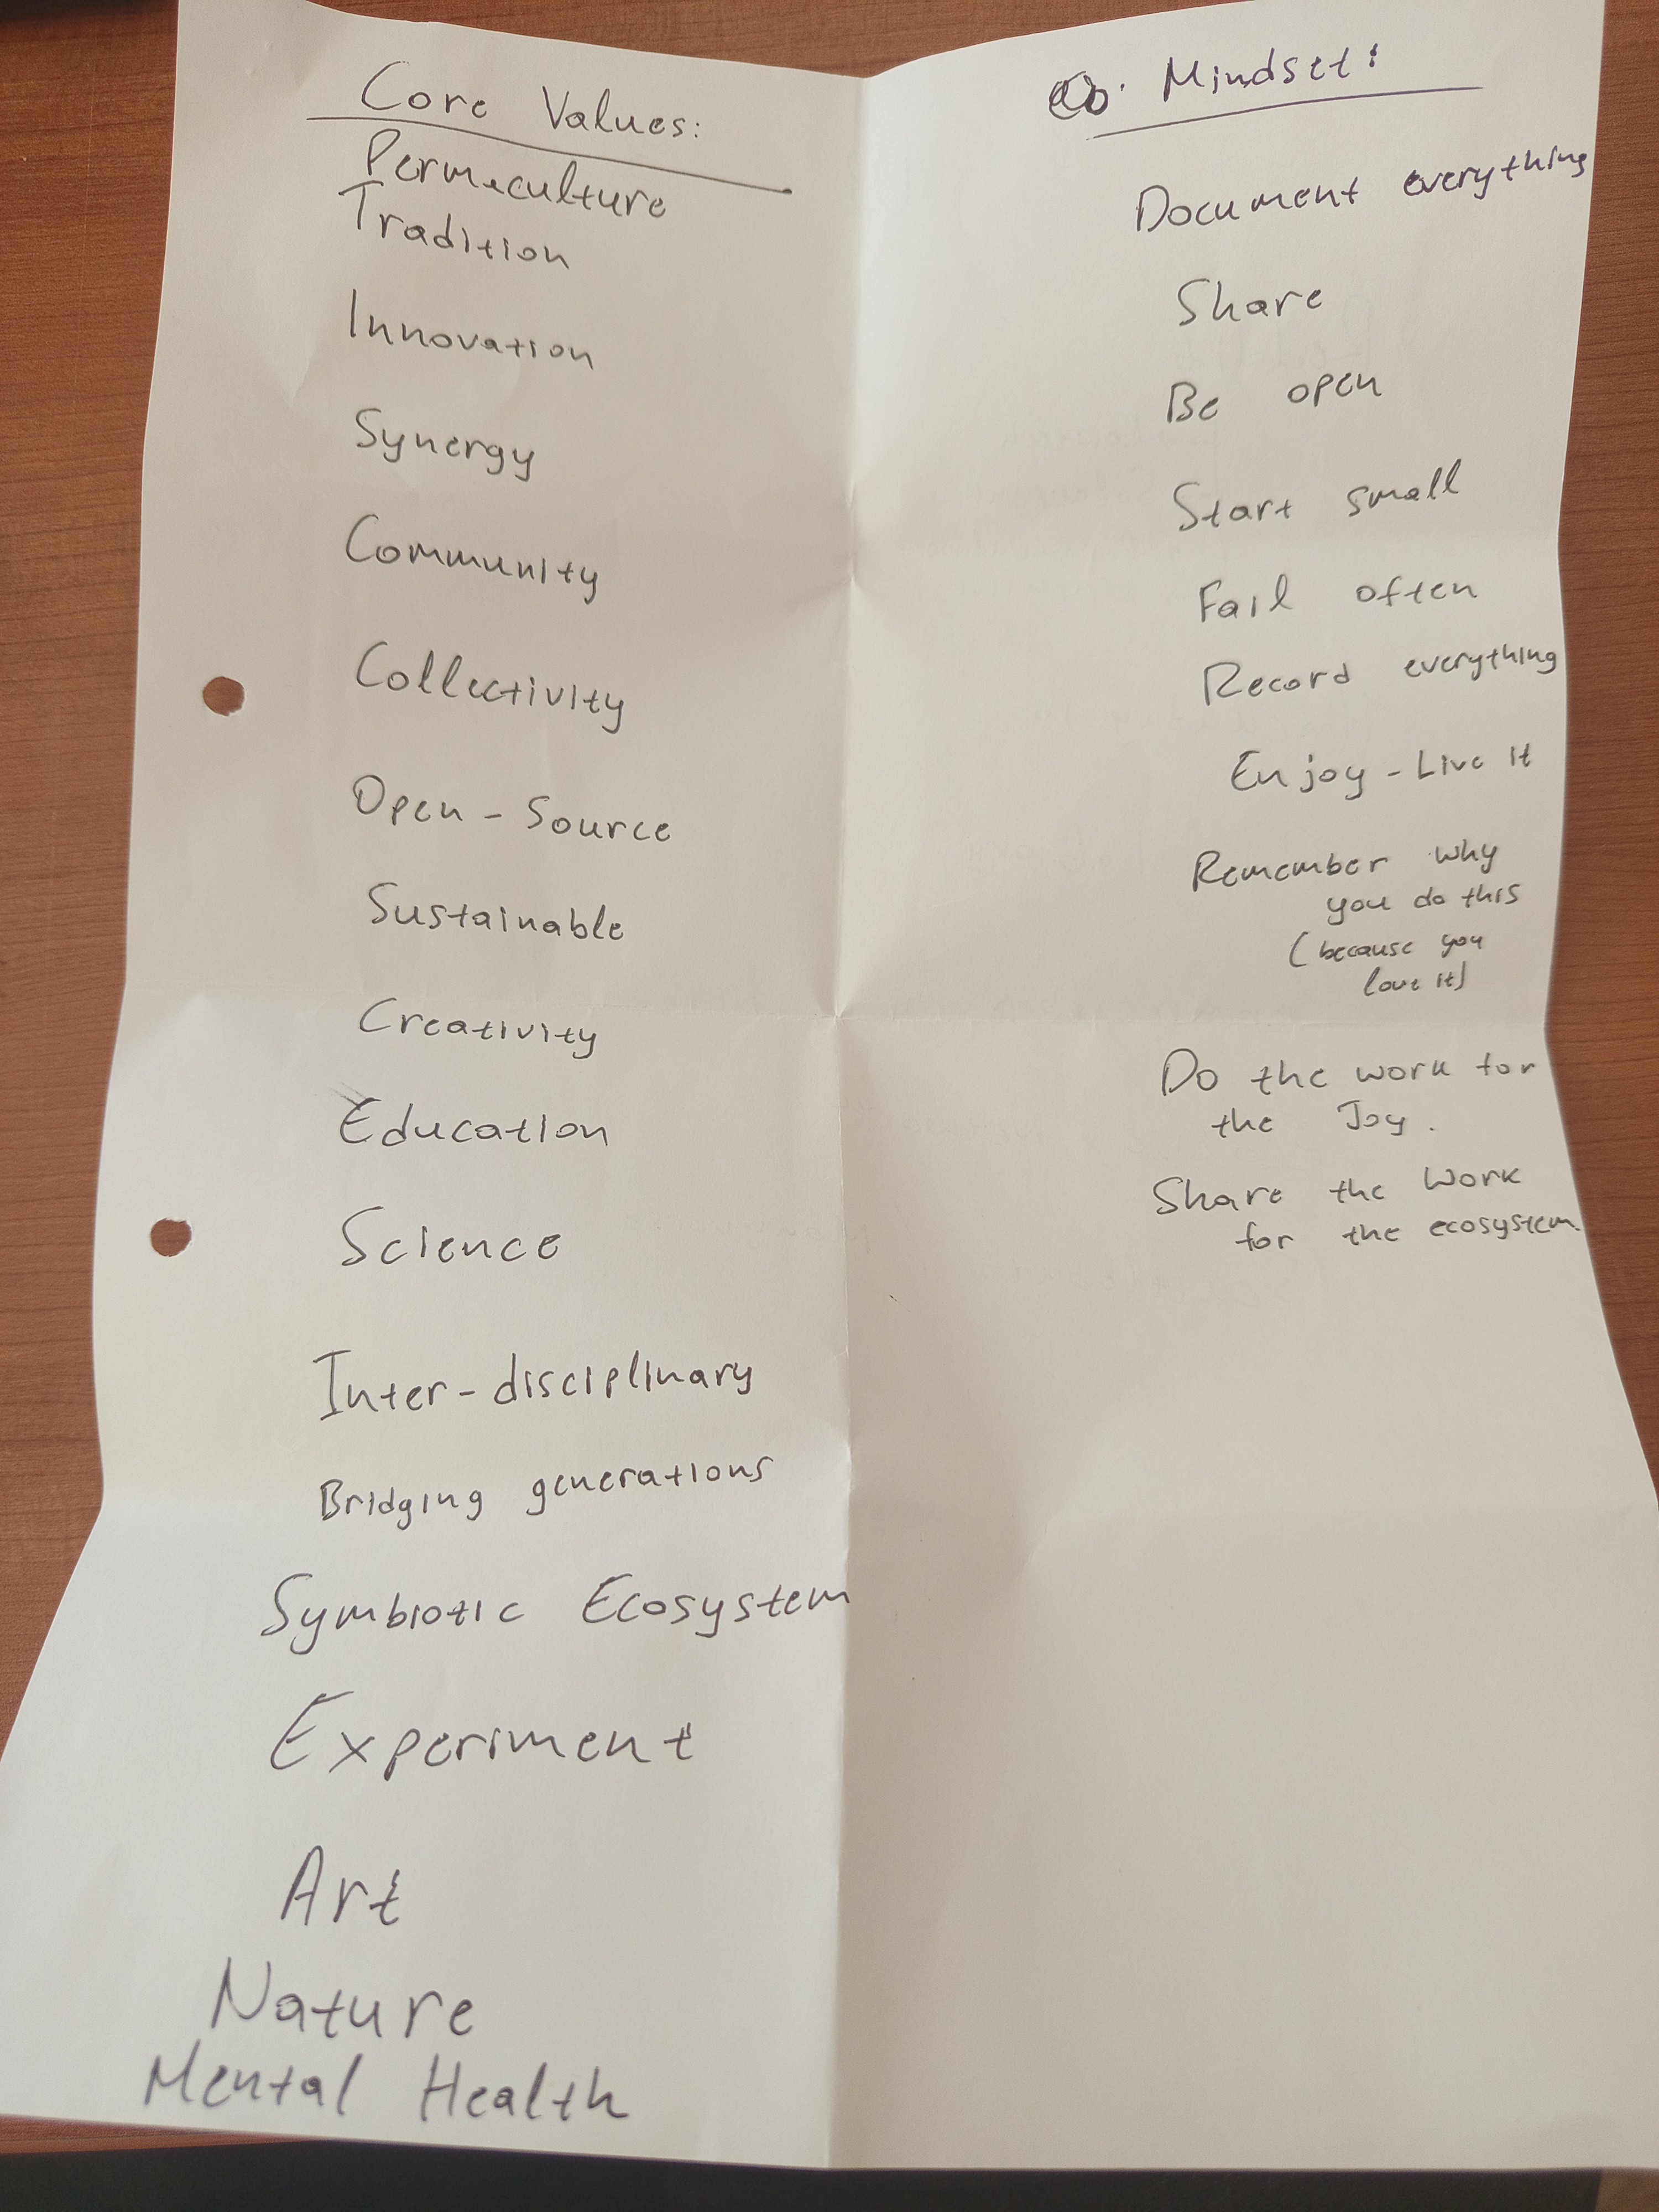 Core Values:
Permaculture
Tradition
Innovation
Synergy
Community
Collectivity
Open - Source
Sustainable
Creativity
Education
Science
Inter-disciplinary
Bridging generations
Symbiotic Ecosystem
Experiment
Art
Nature
Mental Health
Mindset:
Document everything
Share
Be open
Start small
Fail often
Record everything
Enjoy - Live it
Remember why
you do this
(because you
love it)
Do the work for
the Joy.
Share the work
for the ecosystem.